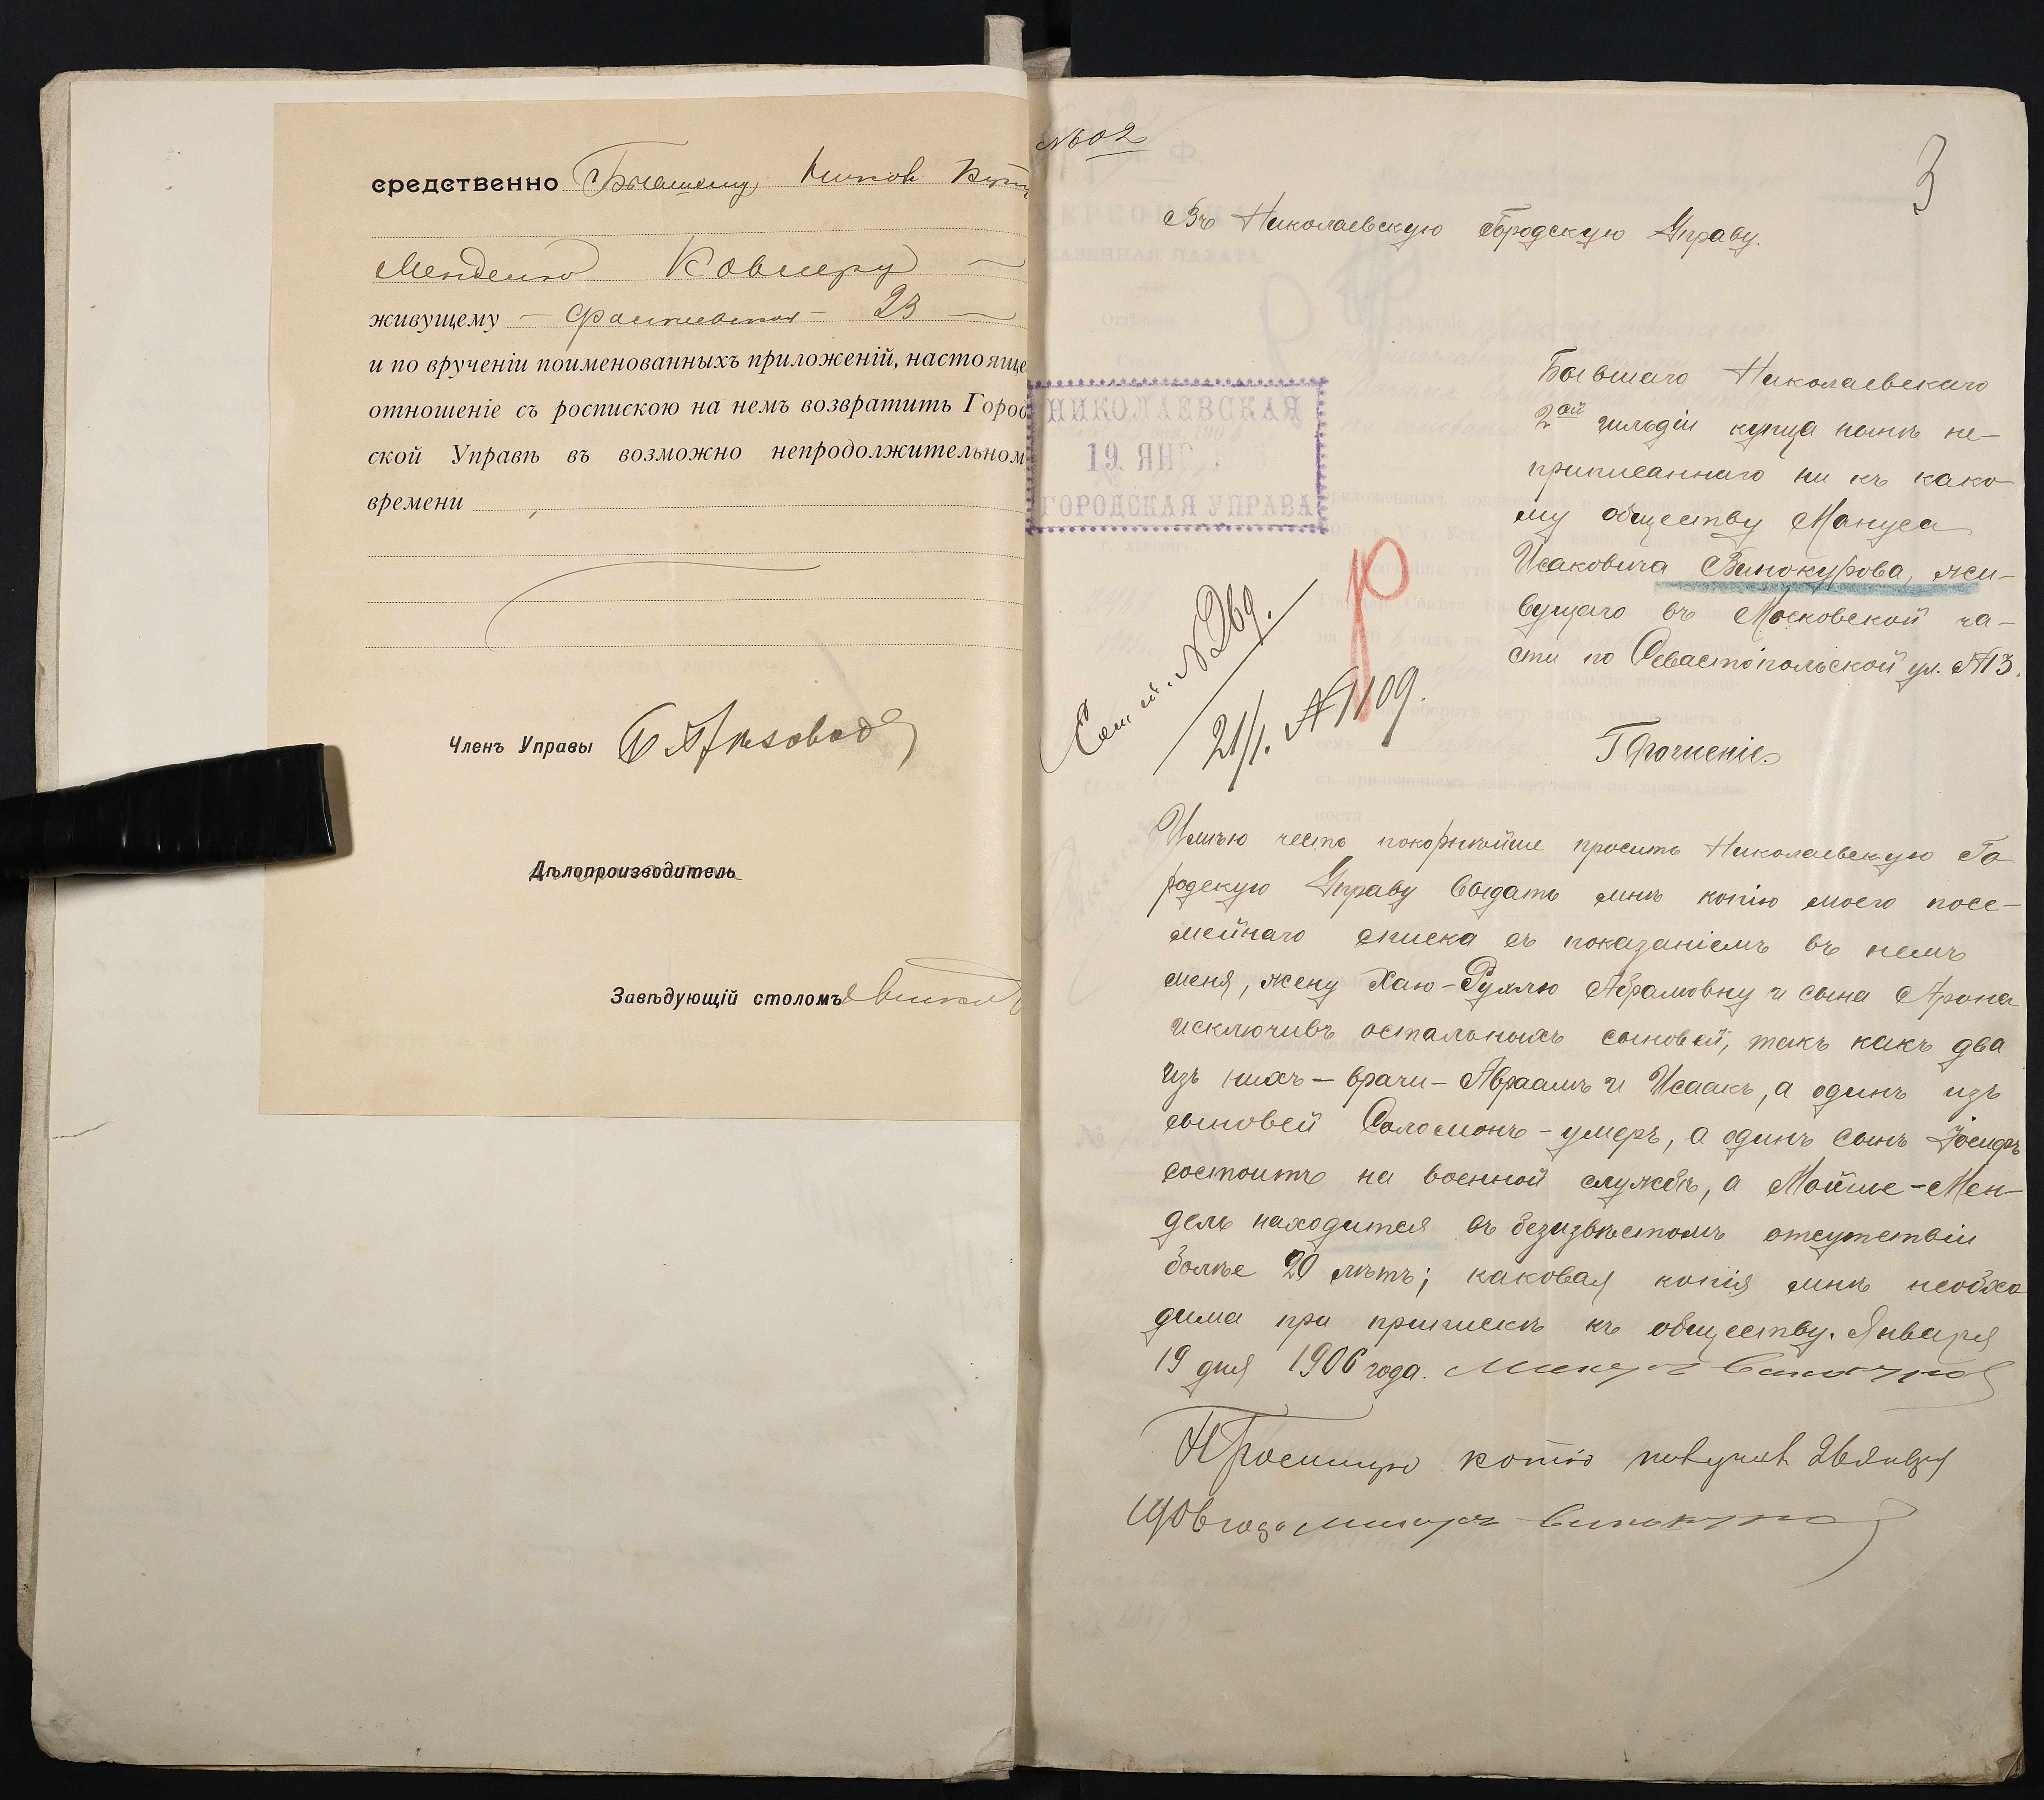 средственно Бывшему Никол Купц
Менделю Ковнеру
живущему — Фалеевская — 23 —
и по врученіи поименованныхъ приложеній, настояще
отношеніе съ роспискою на немъ возвратить Город
ской Управѣ въ возможно непродолжительном
времени
Членъ Управы
Дѣлопроизводитель
Завѣдующій столомъ
№ 02
3
Въ Николаевскую Городскую Управу.
НИКОЛАЕВСКАЯ
19 ЯНВ.
ГОРОДСКАЯ УПРАВА
Бывшаго Николаевскаго
2ой гильдіи купца нынѣ не-
приписаннаго ни къ како
му обществу Мануса
Исаковича Винокурова, жи-
вущаго въ Московской ча-
сти по Севастопольской ул. №13.
Сем. №269.
21/I. №1109.
Прошеніе.
Имѣю честь покорнѣйше просить Николаевскую Го
родскую Управу выдать мнѣ копію моего посе-
мейнаго списка съ показаніемъ въ немъ
меня, жену Хаю-Рухлю Абрамовну и сына Арона
исключивъ остальныхъ сыновей, такъ какъ два
изъ нихъ — врачи — Авраамъ и Исаакъ, а одинъ изъ
сыновей Соломонъ — умеръ, а одинъ сынъ Іосифъ
состоитъ на военной службѣ, а Мойше-Мен-
дель находится въ безизвѣстомъ отсутствіи
болѣе 20 лѣтъ; каковая копія мнѣ необхо
дима при припискѣ къ обществу. Января
19 дня 1906 года. Манус Винокуров
Просимую копію получил 26 Января
1906 года Манус Винокуров